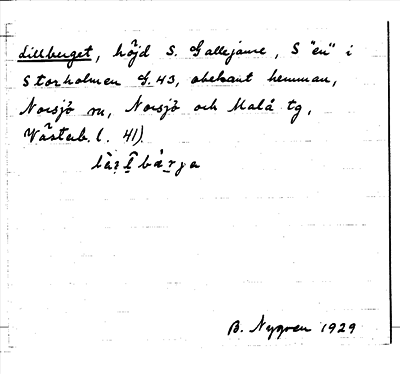 Lillberget, höjd S. Gallejaure, S "en" i
Storholmen G.43, obebant hemman,
Norsjö sn, Norsjö och Malå tg,
Västerb. l. 41).
B. Nygren 1929